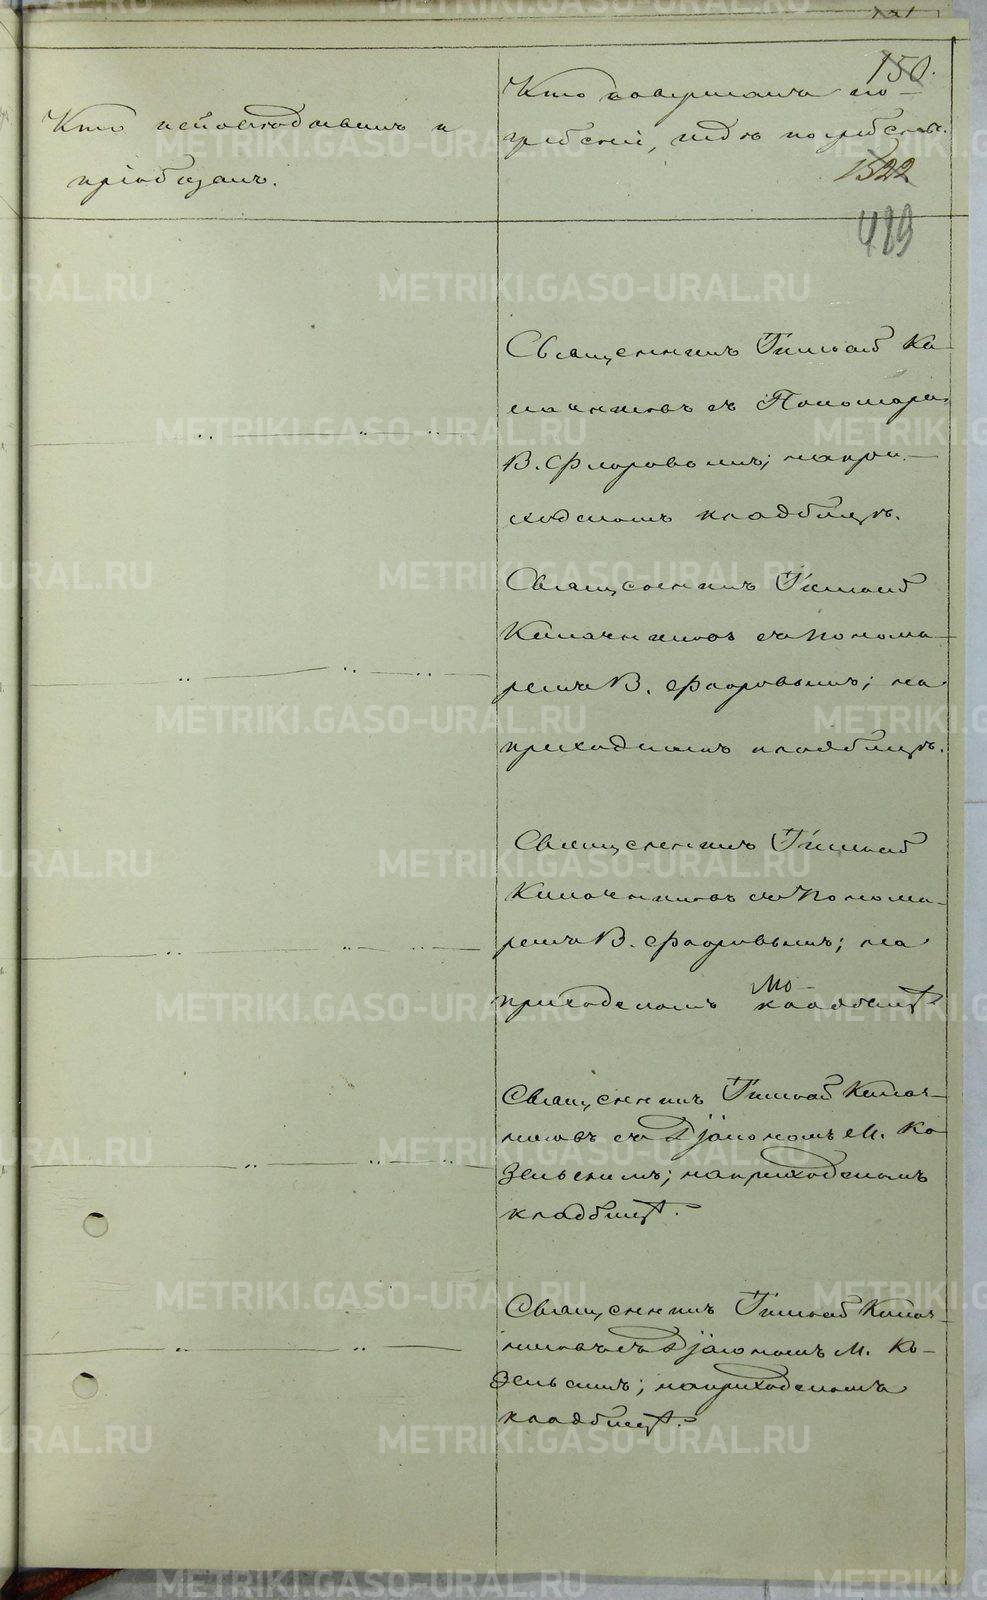 150.
Кто исповѣдывалъ и
пріобщалъ.
Кто совершалъ по-
гребеніе, и гдѣ погребены.
1522
489
Священникъ Гилой Ка
лачниковъ съ Пономаре.
В. Флоровымъ; на при-
ходскомъ кладбищѣ.
Священникъ
Калачниковъ съ Понома-
ремъ В. Флоровымъ; на
приходскомъ кладбищѣ.
Священникъ
Калачниковъ съ Понома-
ремъ В. Флоровымъ; на
приходскомъ кладбищѣ
Священникъ Калач-
никовъ съ Дьякономъ М. Ко
зельскимъ; на приходскомъ
кладбищѣ.
Священникъ Калач-
никовъ съ Дьякономъ М. Ко-
зельскимъ; на приходскомъ
кладбищѣ.
METRIKI.GASO-URAL.RU